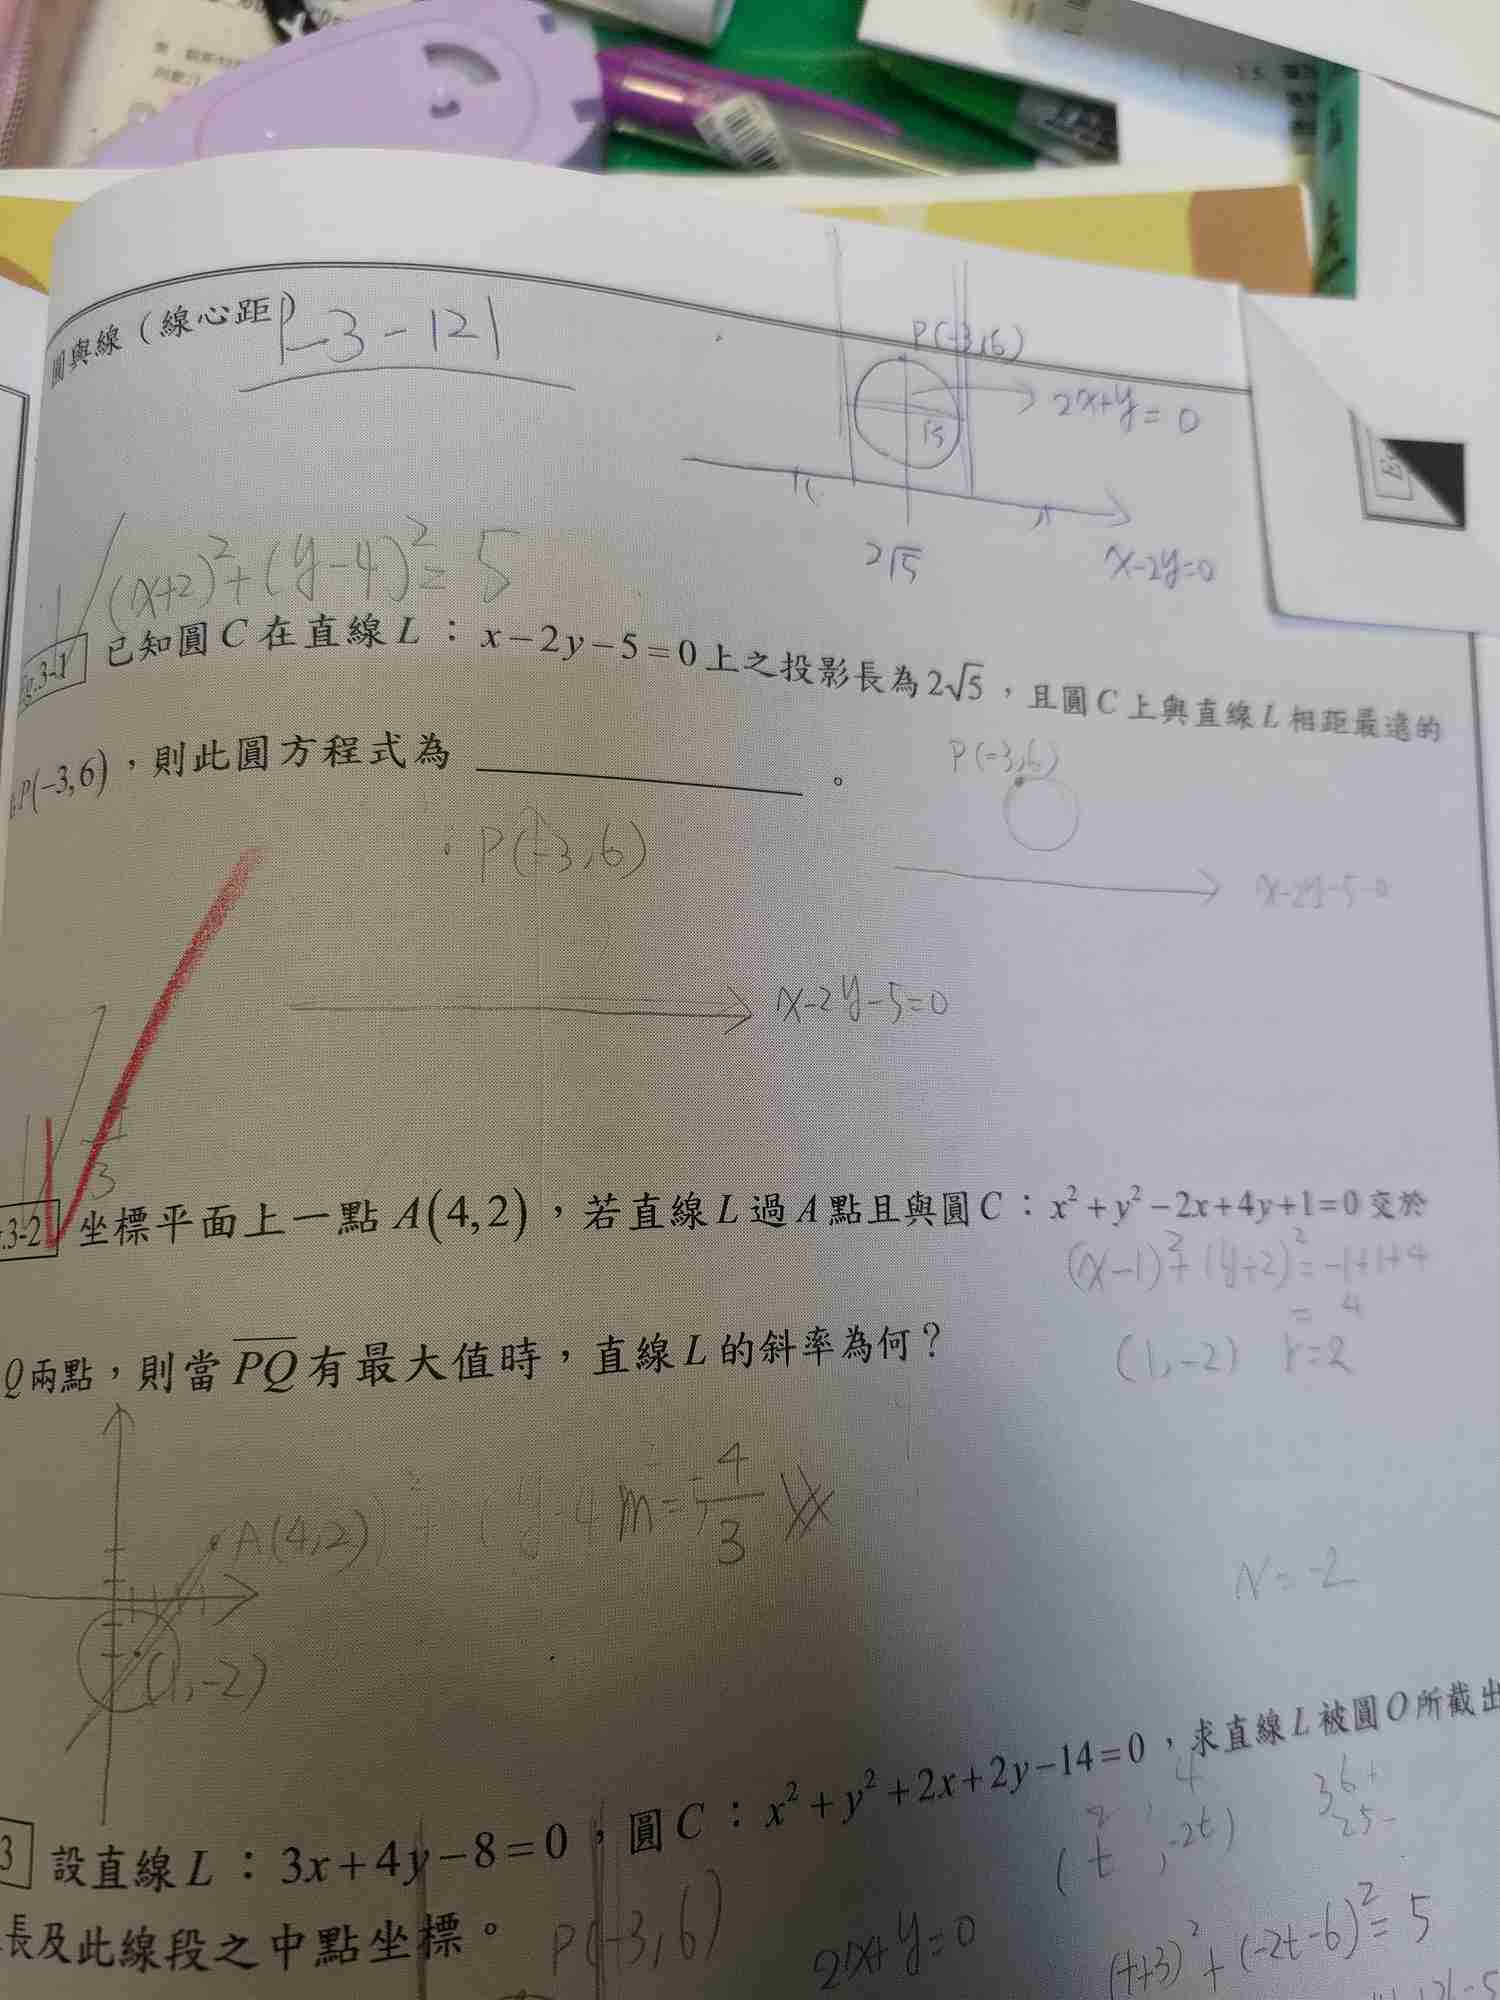 圓與線（線心距）
|-3-12|
P(-3,6)
2x+y=0
√5
2√5
x-2y=0
(x+2)²+(y-4)²=5
3-1 已知圓C在直線L：x-2y-5=0上之投影長為2√5，且圓C上與直線L相距最遠的
P(-3,6)，則此圓方程式為＿＿＿＿。
P(-3,6)
P(-3,6)
x-2y-5=0
x-2y-5=0
4
3
3-2 坐標平面上一點A(4,2)，若直線L過A點且與圓C：x²+y²-2x+4y+1=0交於
(x-1)²+(y+2)²=-1+1+4
=4
Q兩點，則當PQ有最大值時，直線L的斜率為何？
(1,-2) r=2
A(4,2)
m=
4
3
(1,-2)
N=-2
3 設直線L：3x+4y-8=0，圓C：x²+y²+2x+2y-14=0，求直線L被圓O所截出
(t,-2t)
36+
25-
長及此線段之中點坐標。
P(-3,6)
2x+y=0
(t+3)²+(-2t-6)²=5